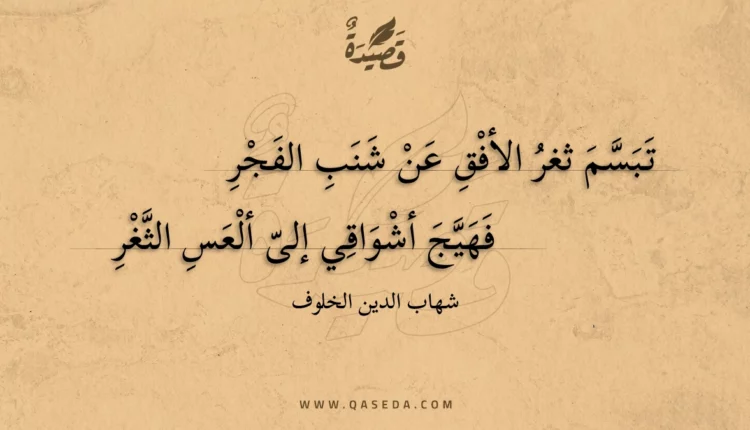 قَصِيدَةٌ
تَبَسَّمَ ثغرُ الأفْقِ عَنْ شَنَبِ الفَجْرِ
فَهَيَّجَ أشْوَاقِي إلىّ ألْعَسِ الثَّغْرِ
شهاب الدين الخلوف
WWW.QASEDA.COM